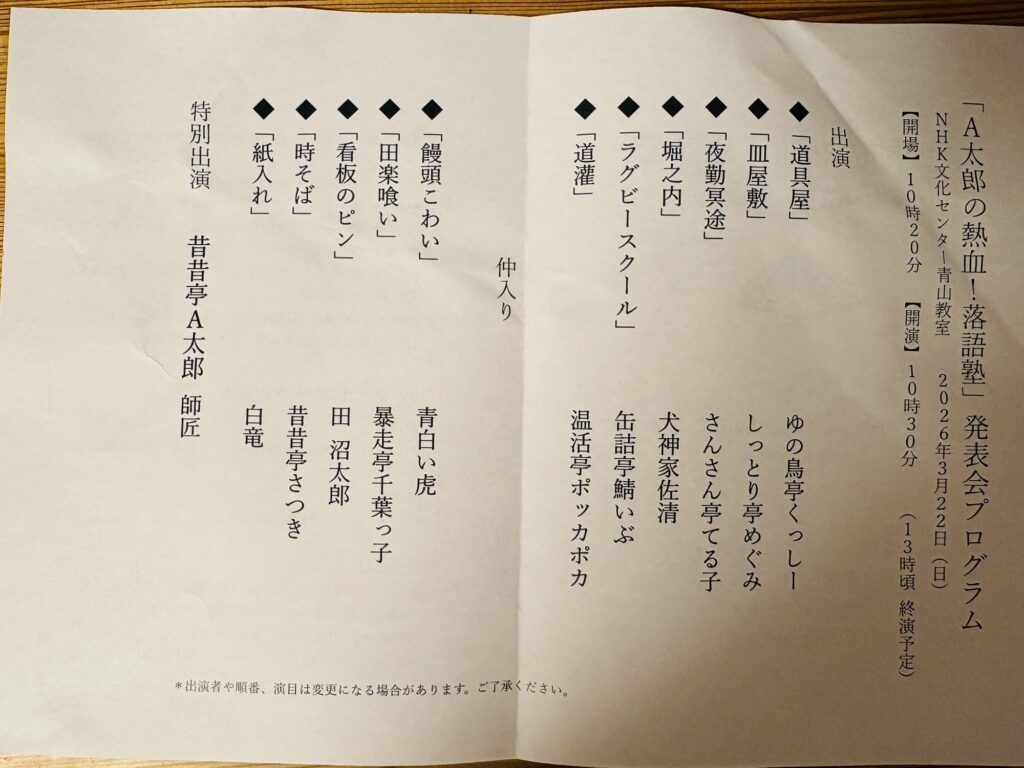 「A太郎の熱血！落語塾」発表会プログラム
NHK文化センター青山教室　2026年3月22日（日）
【開場】10時20分　【開演】10時30分　（13時頃 終演予定）
出演
◆「道具屋」　ゆの鳥亭くっしー
◆「皿屋敷」　しっとり亭めぐみ
◆「夜勤冥途」　さんさん亭てる子
◆「堀之内」　犬神家佐清
◆「ラグビースクール」　缶詰亭鯖いぶ
◆「道灌」　温活亭ポッカポカ
仲入り
◆「饅頭こわい」　青白い虎
◆「田楽喰い」　暴走亭千葉っ子
◆「看板のピン」　田 沼太郎
◆「時そば」　昔昔亭さつき
◆「紙入れ」　白竜
特別出演　昔昔亭A太郎 師匠
＊出演者や順番、演目は変更になる場合があります。ご了承ください。